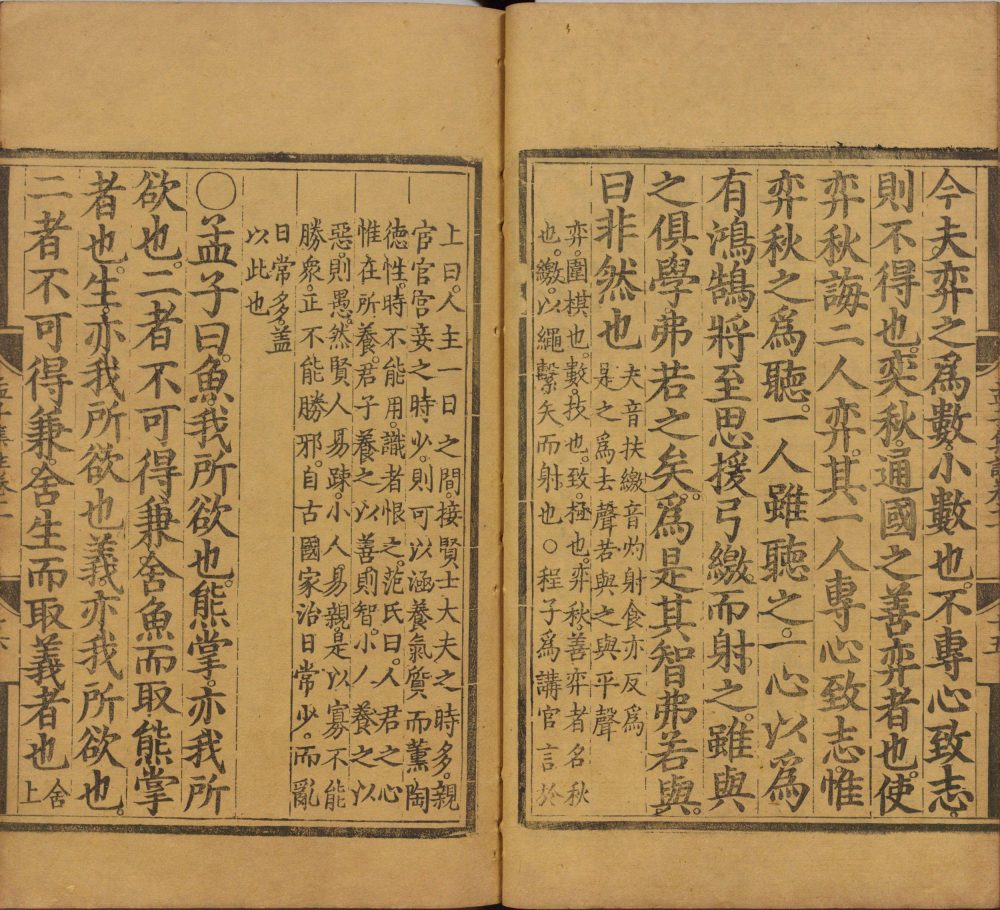 今夫弈之爲數。小數也。不專心致志。
則不得也。奕秋。通國之善弈者也。使
弈秋誨二人弈。其一人專心致志惟
弈秋之爲聽。一人雖聽之。一心以爲
有鴻鵠將至思援弓繳而射之。雖與
之俱學弗若之矣。爲是其智弗若與。
曰非然也
夫音扶繳音灼射食亦反爲
是之爲去聲若與之與平聲
弈。圍棋也。數。技也。致。極也。弈秋。善弈者名秋
也。繳。以繩繫矢而射也。○程子爲講官言於
上曰。人主一日之間。接賢士大夫之時多。親
官官宮妾之時少。則可以涵養氣質。而薰陶
德性。時不能用。識者恨之。范氏曰。人君之心
惟在所養。君子養之以善則智。小人養之以
惡。則愚。然賢人易踈。小人易親。是以寡不能
勝衆。正不能勝邪。自古國家治日常少。而亂
日常多。盖
以此也
○孟子曰。魚。我所欲也。熊掌。亦我所
欲也。二者不可得兼舍魚而取熊掌
者也。生。亦我所欲也義亦我所欲也。
二者不可得兼。舍生而取義者也
舍
上